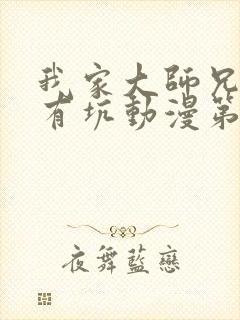 我家大師兄
有坑動漫第
夜舞藍戀